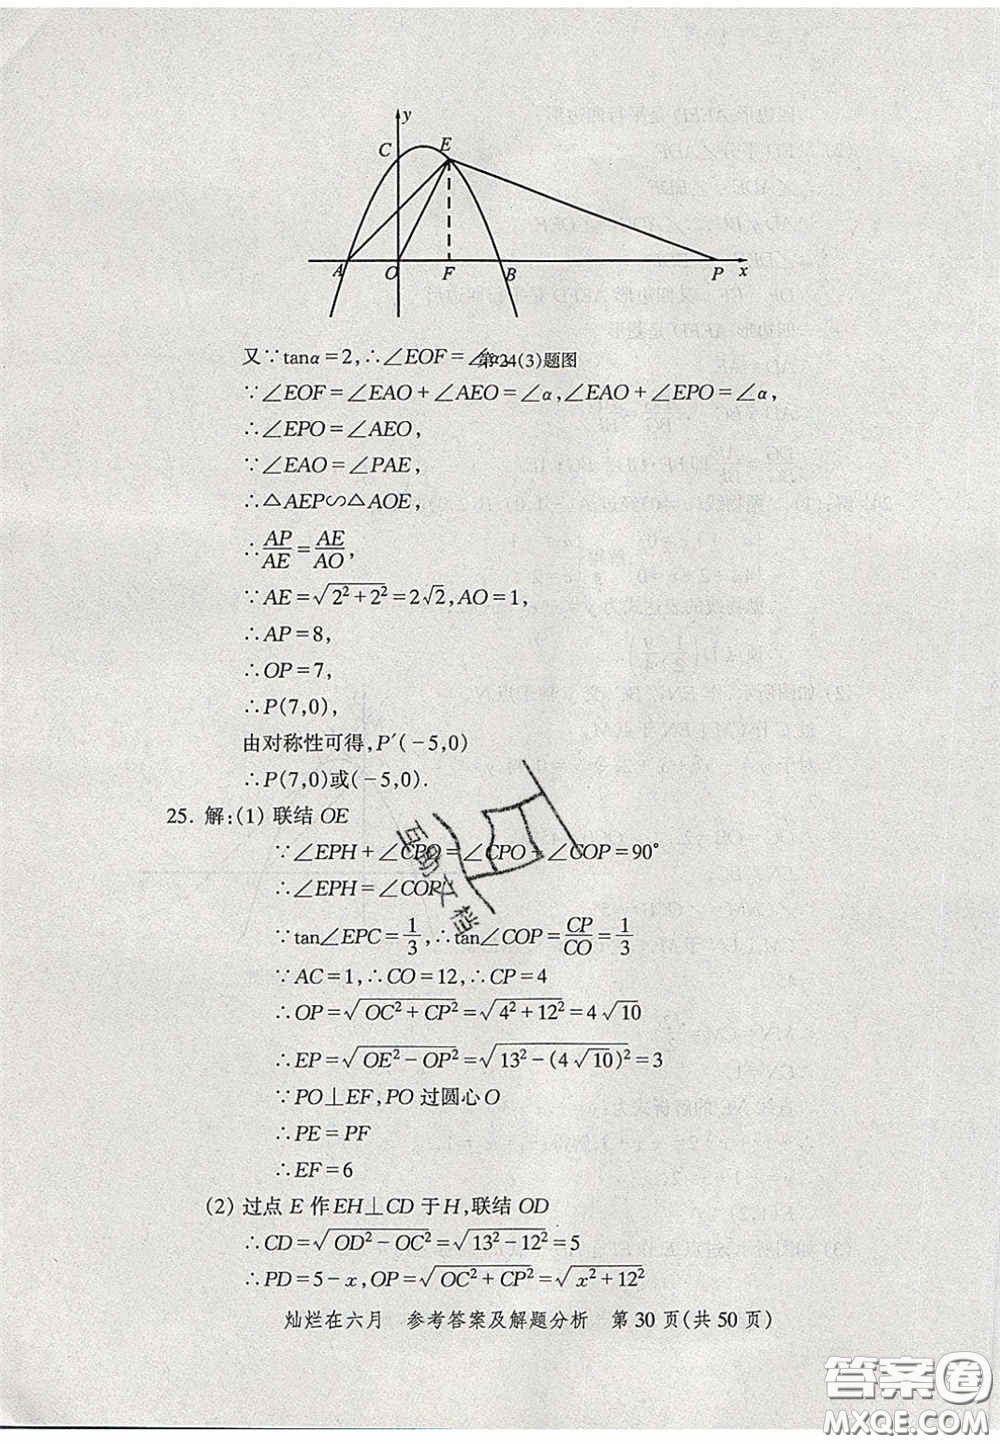 y
C
E
A
O
F
B
P
x
第24(3)题图
又∵tanα=2,∴∠EOF=∠α,
∵∠EOF=∠EAO+∠AEO=∠α,∠EAO+∠EPO=∠α,
∴∠EPO=∠AEO,
∵∠EAO=∠PAE,
∴△AEP∽△AOE,
∴AP/AE=AE/AO,
∵AE=√(2²+2²)=2√2,AO=1,
∴AP=8,
∴OP=7,
∴P(7,0),
由对称性可得,P′(-5,0)
∴P(7,0)或(-5,0).
25. 解:(1) 联结OE
∵∠EPH+∠CPO=∠CPO+∠COP=90°
∴∠EPH=∠COP
∵tan∠EPC=1/3,∴tan∠COP=CP/CO=1/3
∵AC=1,∴CO=12,∴CP=4
∴OP=√(OC²+CP²)=√(4²+12²)=4√10
∴EP=√(OE²-OP²)=√(13²-(4√10)²)=3
∵PO⊥EF,PO过圆心O
∴PE=PF
∴EF=6
(2) 过点E作EH⊥CD于H,联结OD
∴CD=√(OD²-OC²)=√(13²-12²)=5
∴PD=5-x,OP=√(OC²+CP²)=√(x²+12²)
灿烂在六月 参考答案及解题分析 第30页(共50页)
互助文档
答案圈
MXQE.COM